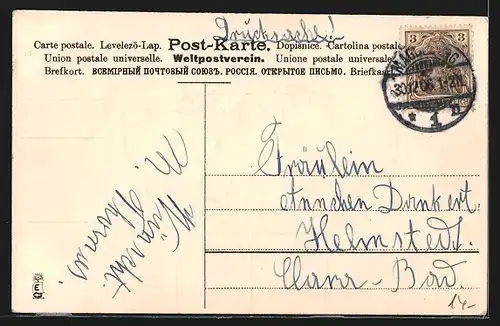 Drucksache!
Carte postale. Levelező-Lap. Post-Karte. Dopisnice. Cartolina postale
Union postale universelle. Weltpostverein. Unione postale universale
Brefkort. ВСЕМІРНЫЙ ПОЧТОВЫЙ СОЮЗЪ. РОССІЯ. ОТКРЫТОЕ ПИСЬМО. Briefkaart
3 3
30.12.06
* 1 n
Fräulein
Annchen Dankert.
Helmstedt.
Clara-Bad.
14-